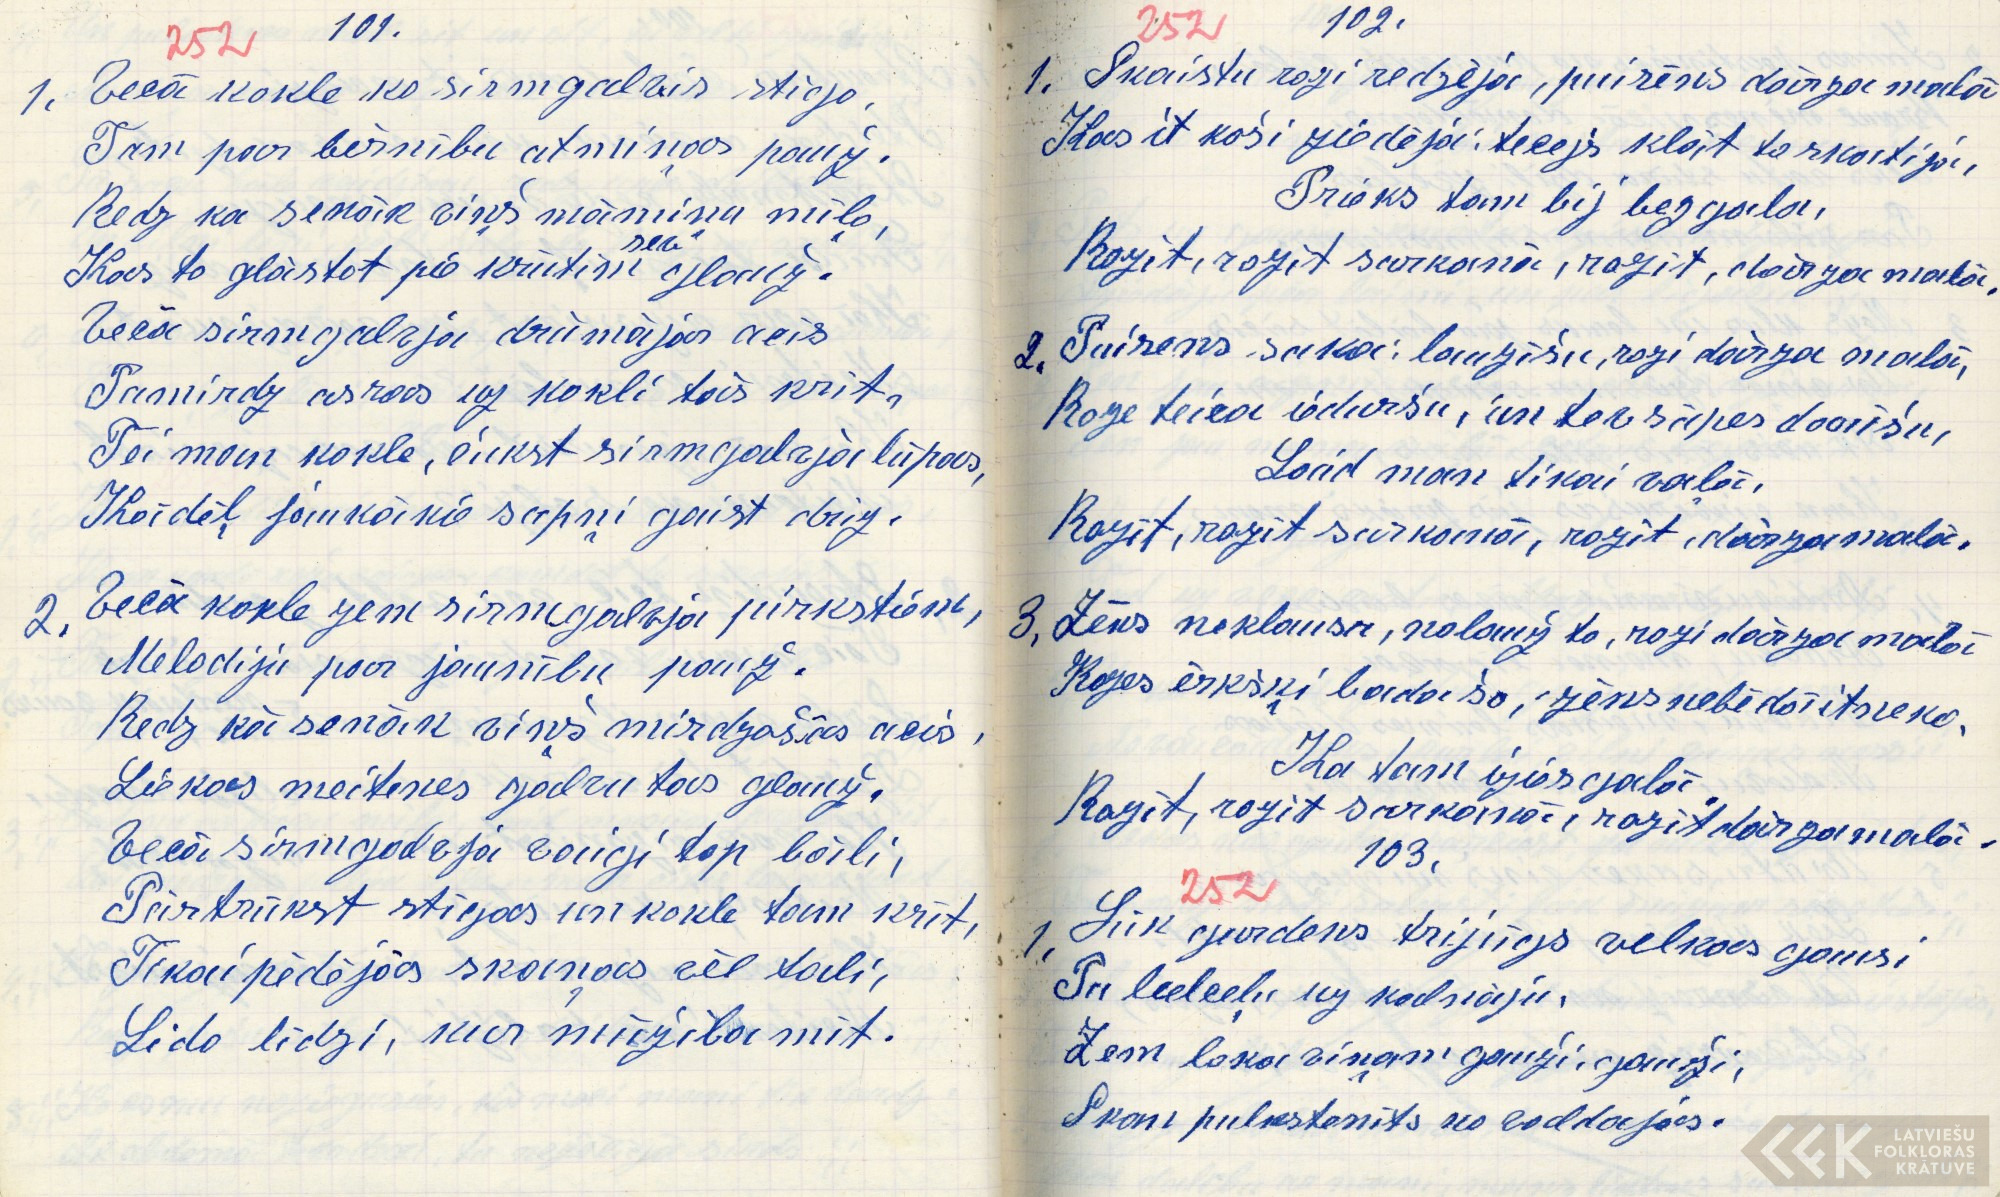 252 101.
1. Vecā kokle ko sirmgalvis stīgo,
Tam par bērnību atmiņas pauž.
Redz ka senāk viņš māmiņu mīļo,
Kas to glāstot pie krūtīm sev glauž.
Vecā sirmgalvja drūmājās acīs
Pamirdz asras uz kokli tās krīt,
Tei man kokle, čukst sirmgalvja lūpas,
Kādēļ jaukākie sapņi gaist drīz.
2. Vecā kokle zem sirmgalvja pirkstiem,
Melodiju par jaunību pauž.
Redz kā senāk viņš mirdzošās acīs,
Liekas meitenes galvu tas glauž.
Vecā sirmgalvja vaigi top bāli,
Pārtrūkst stīgas un kokle tam krīt,
Tikai pēdējās skaņas vēl tāli,
Lido līdzi, kur mūžība mīt.
252 102.
1. Skaistu rozi redzēja, puisēns dārza malā
Kas it koši ziedēja: tecejs klāt to skatīja,
Prieks tam bij bezgala,
Rozīt, rozīt sarkanā, rozīt, dārza malā.
2. Puisens saka: lauzīšu, rozi dārza malā,
Roze teica iduršu, un tev sāpes daŗišu,
Laid man tikai vaļā,
Rozīt, rozīt sarkanā, rozīt, dārza malā.
3. Zēns neklausa, nolauž to, rozi dārza malā
Rozes ērkšķi bada šo, zēns nebēdā itneko,
Ka tam izjūs galā.
Rozīt, rozīt sarkanā, rozīt dārza malā.
103.
252
1. Lūk gardens trijūgs velkas gausi
Pa lielceļu uz kalnāju,
Zem loka viņam gauži, gauži,
Skan pulkstenīts no valdajās.
LATVIEŠU
FOLKLORAS
KRĀTUVE